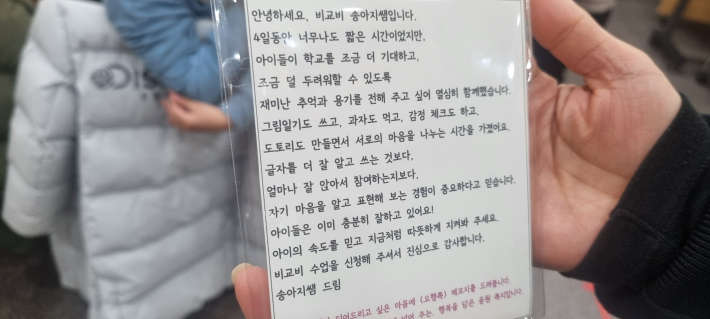 안녕하세요, 비교비 송아지쌤입니다.
4일동안 너무나도 짧은 시간이었지만,
아이들이 학교를 조금 더 기대하고,
조금 덜 두려워할 수 있도록
재미난 추억과 용기를 전해 주고 싶어 열심히 함께했습니다.
그림일기도 쓰고, 과자도 먹고, 감정 체크도 하고,
도토리도 만들면서 서로의 마음을 나누는 시간을 가졌어요.
글자를 더 잘 알고 쓰는 것보다,
얼마나 잘 앉아서 참여하는지보다,
자기 마음을 알고 표현해 보는 경험이 중요하다고 믿습니다.
아이들은 이미 충분히 잘하고 있어요!
아이의 속도를 믿고 지금처럼 따뜻하게 지켜봐 주세요.
비교비 수업을 신청해 주셔서 진심으로 감사합니다.
송아지쌤 드림
되어드리고 싶은 마음에 (오행복) 도려봅니다.
주는, 행복을 담은 응원 쪽지입니다.